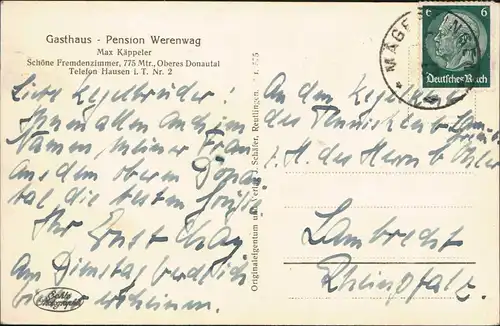 Gasthaus - Pension Werenwag
Max Käppeler
Schöne Fremdenzimmer, 775 Mtr., Oberes Donautal
Telefon Hausen i. T. Nr. 2
Liebe Kegelbrüder!
Ihnen allen auch im
Namen meiner Frau
aus dem oberen Donau
tal die besten Grüße
Ihr Ernst
Am Dienstag werde ich
erscheinen.
Echte Photographie
Originaleigentum und Verlag J. Schäfer, Reutlingen. Nr.
MÄGER
6 6
Deutsches Reich
An den Kegelklub
des Tennisklub
z. H. des Herrn
Lambrecht
Rheinpfalz.